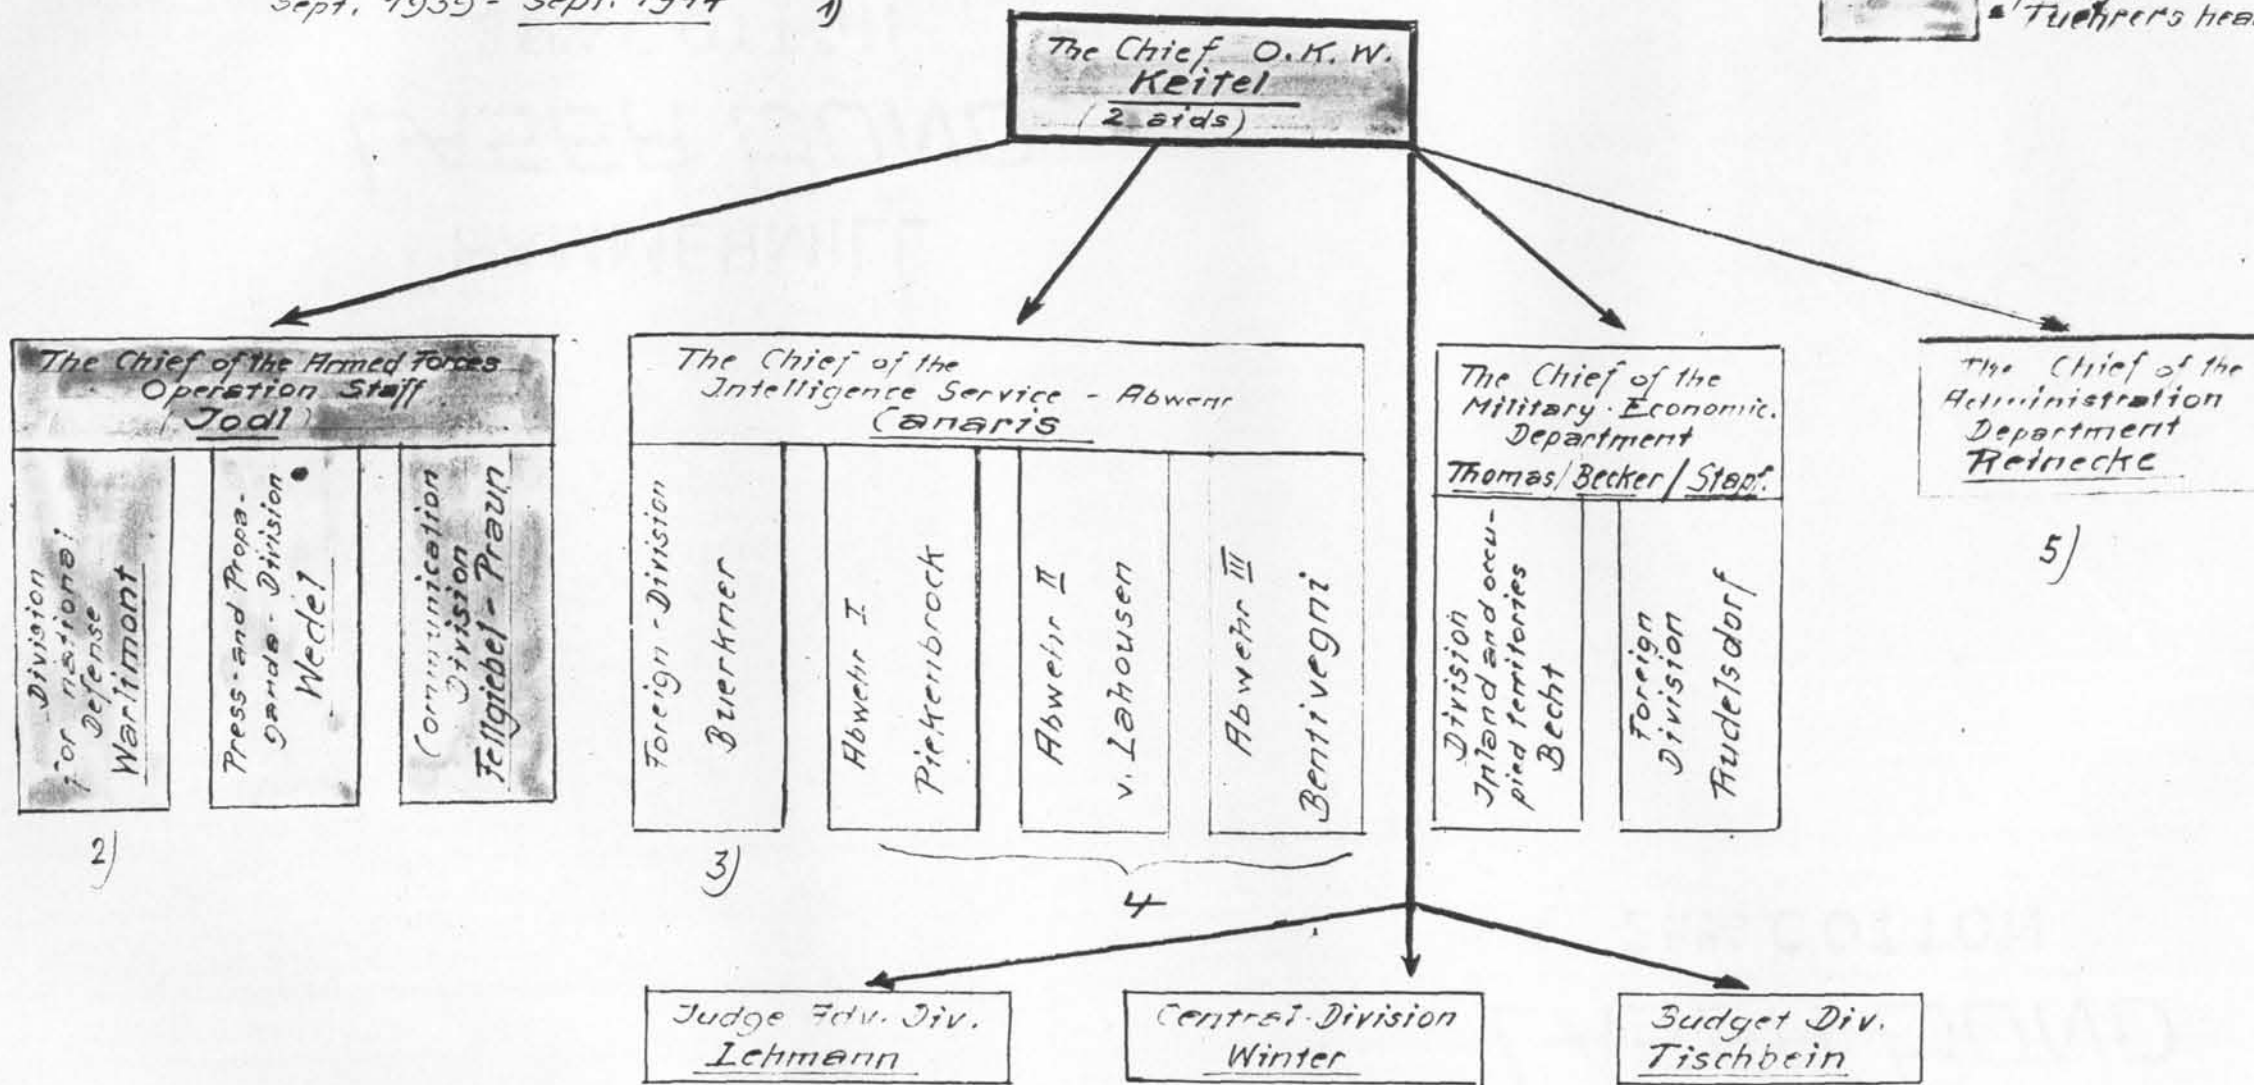 Sept. 1939 - Sept. 1944
1)
Fuehrers
The Chief O.K.W.
Keitel
(2 aids)
The Chief of the Armed Forces
Operation Staff
(Jodl)
Division
for national
Defense
Warlimont
Press- and Propa-
ganda - Division
Wedel
Communication
Division
Fellgiebel - Praun
2)
The Chief of the
Intelligence Service - Abwehr
Canaris
Foreign - Division
Buerkner
Abwehr I
Piekenbrock
Abwehr II
v. Lahousen
Abwehr III
Bentivegni
3)
4
The Chief of the
Military - Economic.
Department
Thomas / Becker / Stapf.
Division
Inland and occu-
pied territories
Becht
Foreign
Division
Rudelsdorf
The Chief of the
Administration
Department
Reinecke
5)
Judge Adv. Div.
Lehmann
Central-Division
Winter
Budget Div.
Tischbein
COTTON